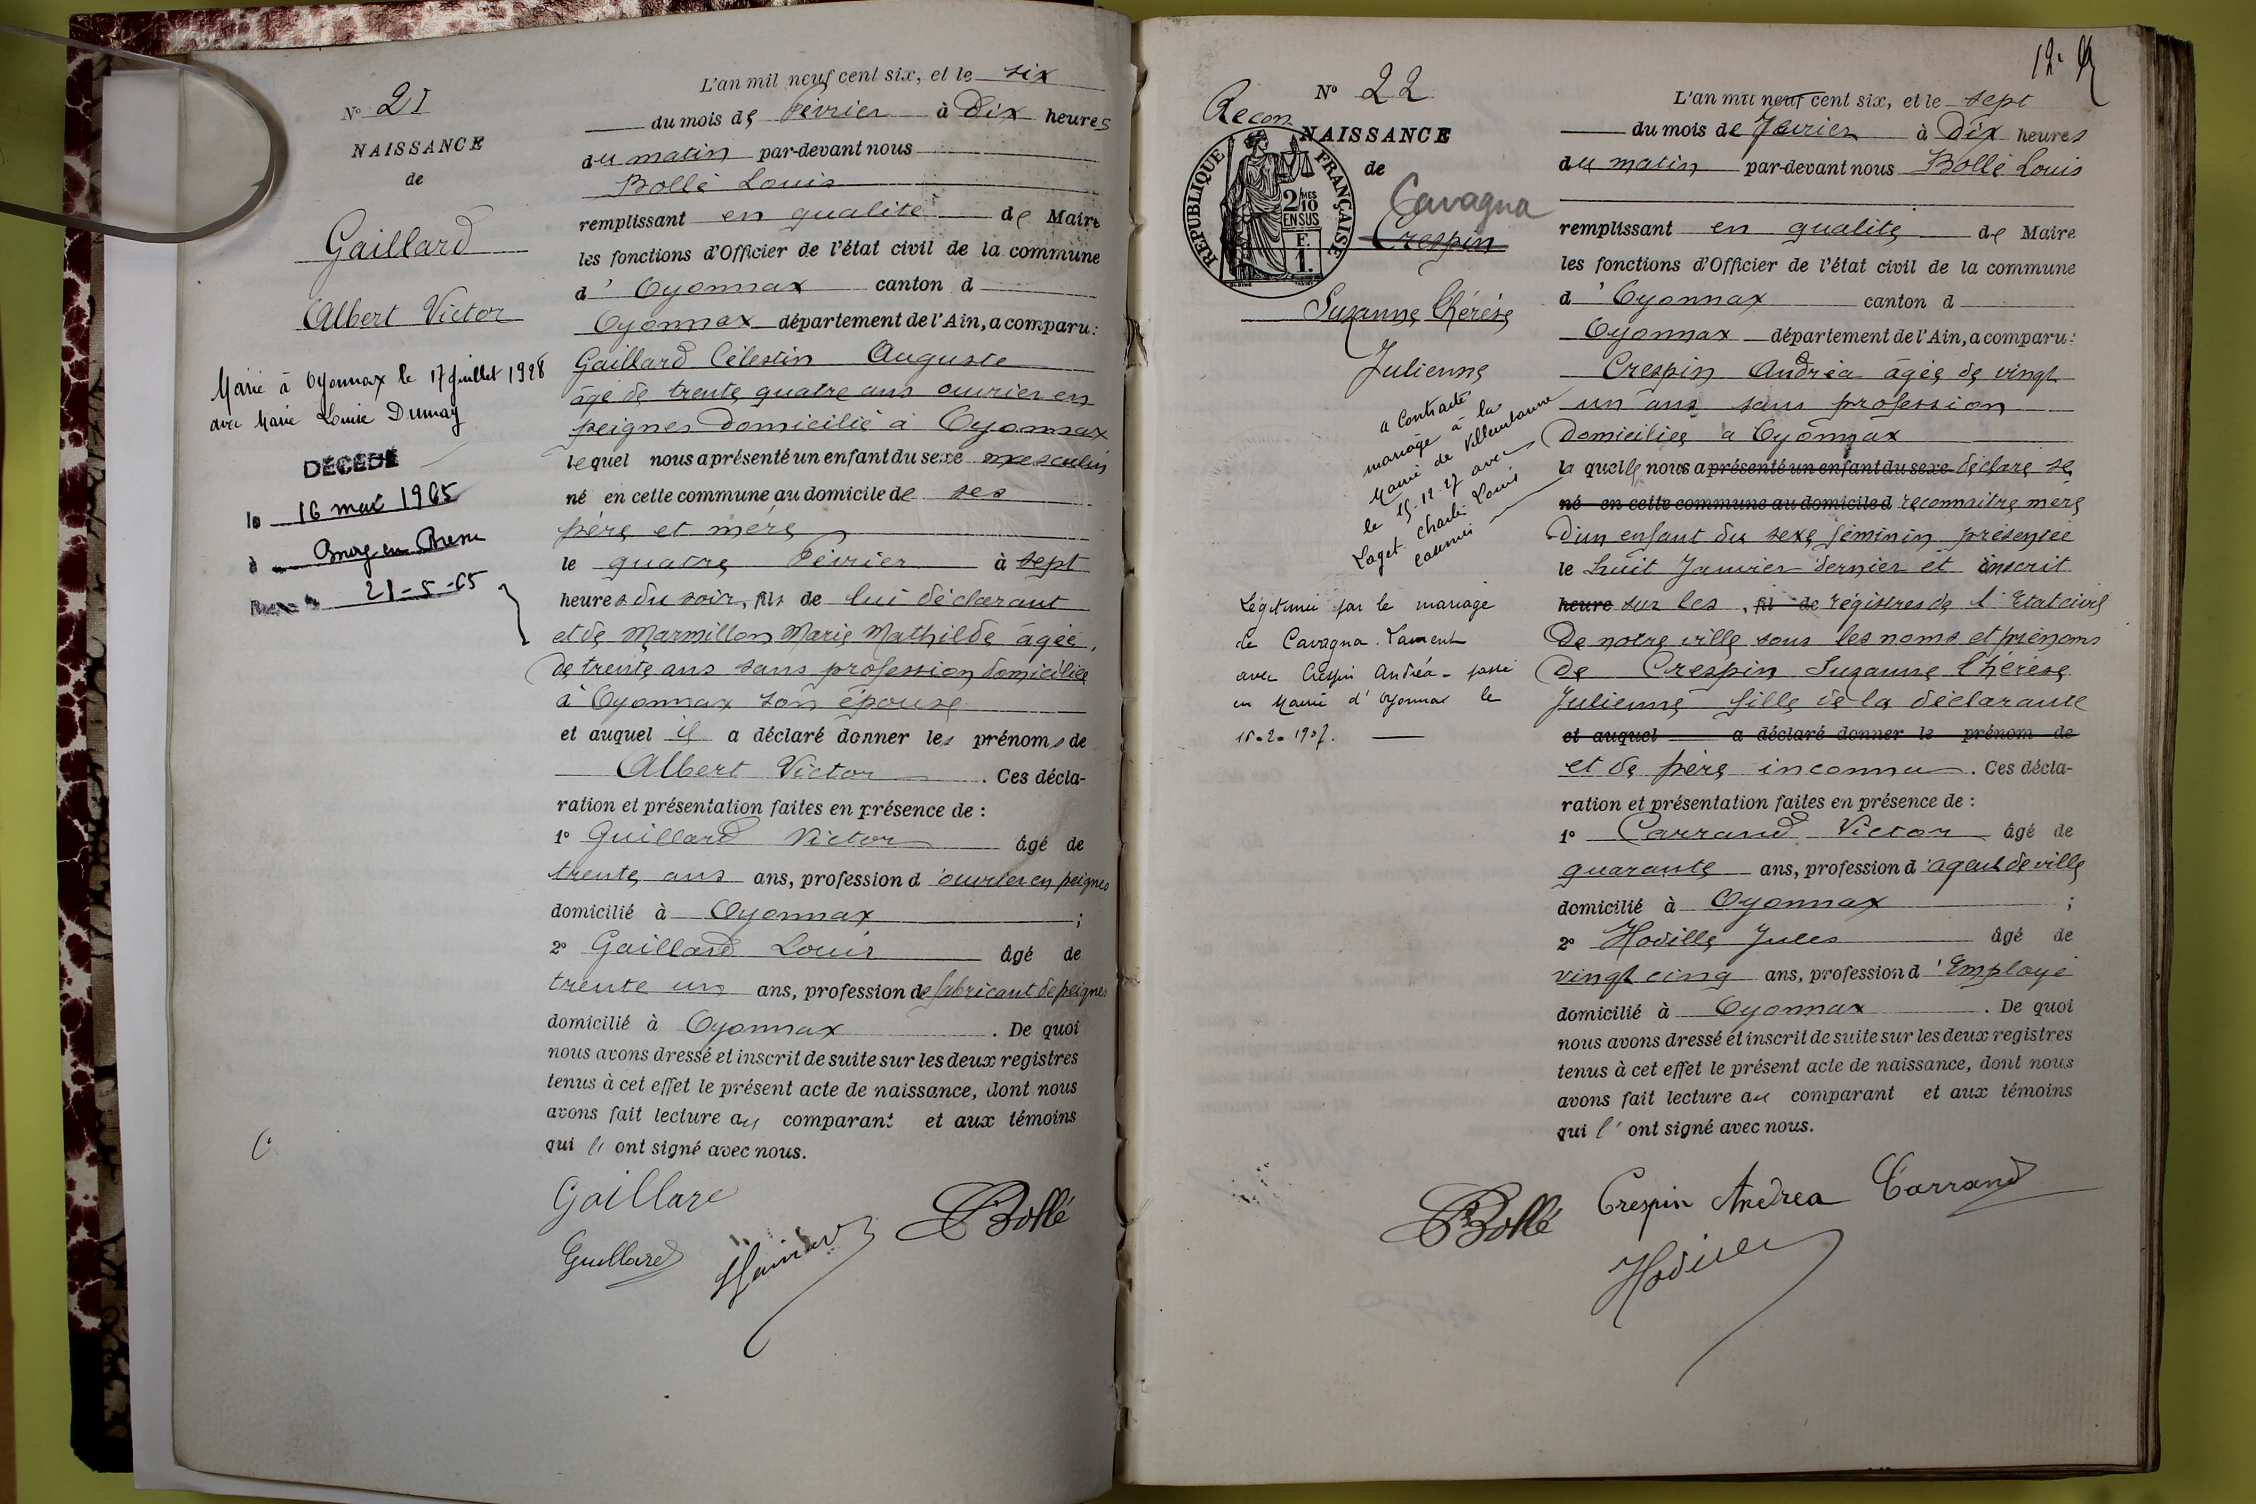 N° 21
NAISSANCE
de
Gaillard
Albert Victor
Marié à Oyonnax le 17 juillet 1928
avec Marie Louise Dumay
DÉCÉDÉ
le 16 mai 1965
à Bourg en Bresse
21-5-65
L'an mil neuf cent six, et le six
du mois de Février à Dix heures
du matin par-devant nous
Bollé Louis
remplissant en qualité de Maire
les fonctions d'Officier de l'état civil de la commune
d' Oyonnax canton d
Oyonnax département de l'Ain, a comparu :
Gaillard Célestin Auguste
âgé de trente quatre ans ouvrier en
peignes domicilié à Oyonnax
lequel nous a présenté un enfant du sexe masculin
né en cette commune au domicile de ses
père et mère
le quatre Février à sept
heures du soir, fils de lui déclarant
et de Marmillon Marie Mathilde âgée
de trente ans sans profession domiciliée
à Oyonnax son épouse
et auquel il a déclaré donner les prénoms de
Albert Victor . Ces décla-
ration et présentation faites en présence de :
1° Guillard Victor âgé de
trente ans ans, profession d'ouvrier en peignes
domicilié à Oyonnax ;
2° Gaillard Louis âgé de
trente un ans, profession de fabricant de peignes
domicilié à Oyonnax . De quoi
nous avons dressé et inscrit de suite sur les deux registres
tenus à cet effet le présent acte de naissance, dont nous
avons fait lecture au comparant et aux témoins
qui l' ont signé avec nous.
Gaillard
Guillard Bollé
12
Recon
N° 22
NAISSANCE
de
RÉPUBLIQUE FRANÇAISE
2/10 MES
EN SUS
F.
1.
Cavagna
Crespin
Suzanne Thérèse
Julienne
a contracté
mariage à la
Mairie de Villeurbanne
le 15.12.27 avec
Laget Charles Louis
Légitimée par le mariage
de Cavagna Laurent
avec Crespin Andréa - passé
en Mairie d'Oyonnax le
16-2-1907.
L'an mil neuf cent six, et le sept
du mois de Février à Dix heures
du matin par-devant nous Bollé Louis
remplissant en qualité de Maire
les fonctions d'Officier de l'état civil de la commune
d' Oyonnax canton d
Oyonnax département de l'Ain, a comparu :
Crespin Andréa âgée de vingt
un ans sans profession
domiciliée à Oyonnax
la quelle nous a présenté un enfant du sexe déclaré se
né en cette commune au domicile d reconnaitre mère
d'un enfant du sexe féminin présentée
le huit Janvier dernier et inscrit
heure sur les , fil de régistres de l'Etat civil
de notre ville sous les noms et prénoms
de Crespin Suzanne Thérèse
Julienne fille de la déclarante
et auquel a déclaré donner le prénom de
et de père inconnu . Ces décla-
ration et présentation faites en présence de :
1° Carrand Victor âgé de
quarante ans, profession d'agent de ville
domicilié à Oyonnax ;
2° Hodille Jules âgé de
vingt cinq ans, profession d'Employé
domicilié à Oyonnax . De quoi
nous avons dressé et inscrit de suite sur les deux registres
tenus à cet effet le présent acte de naissance, dont nous
avons fait lecture au comparant et aux témoins
qui l' ont signé avec nous.
Bollé Crespin Andréa Carrand
Hodille